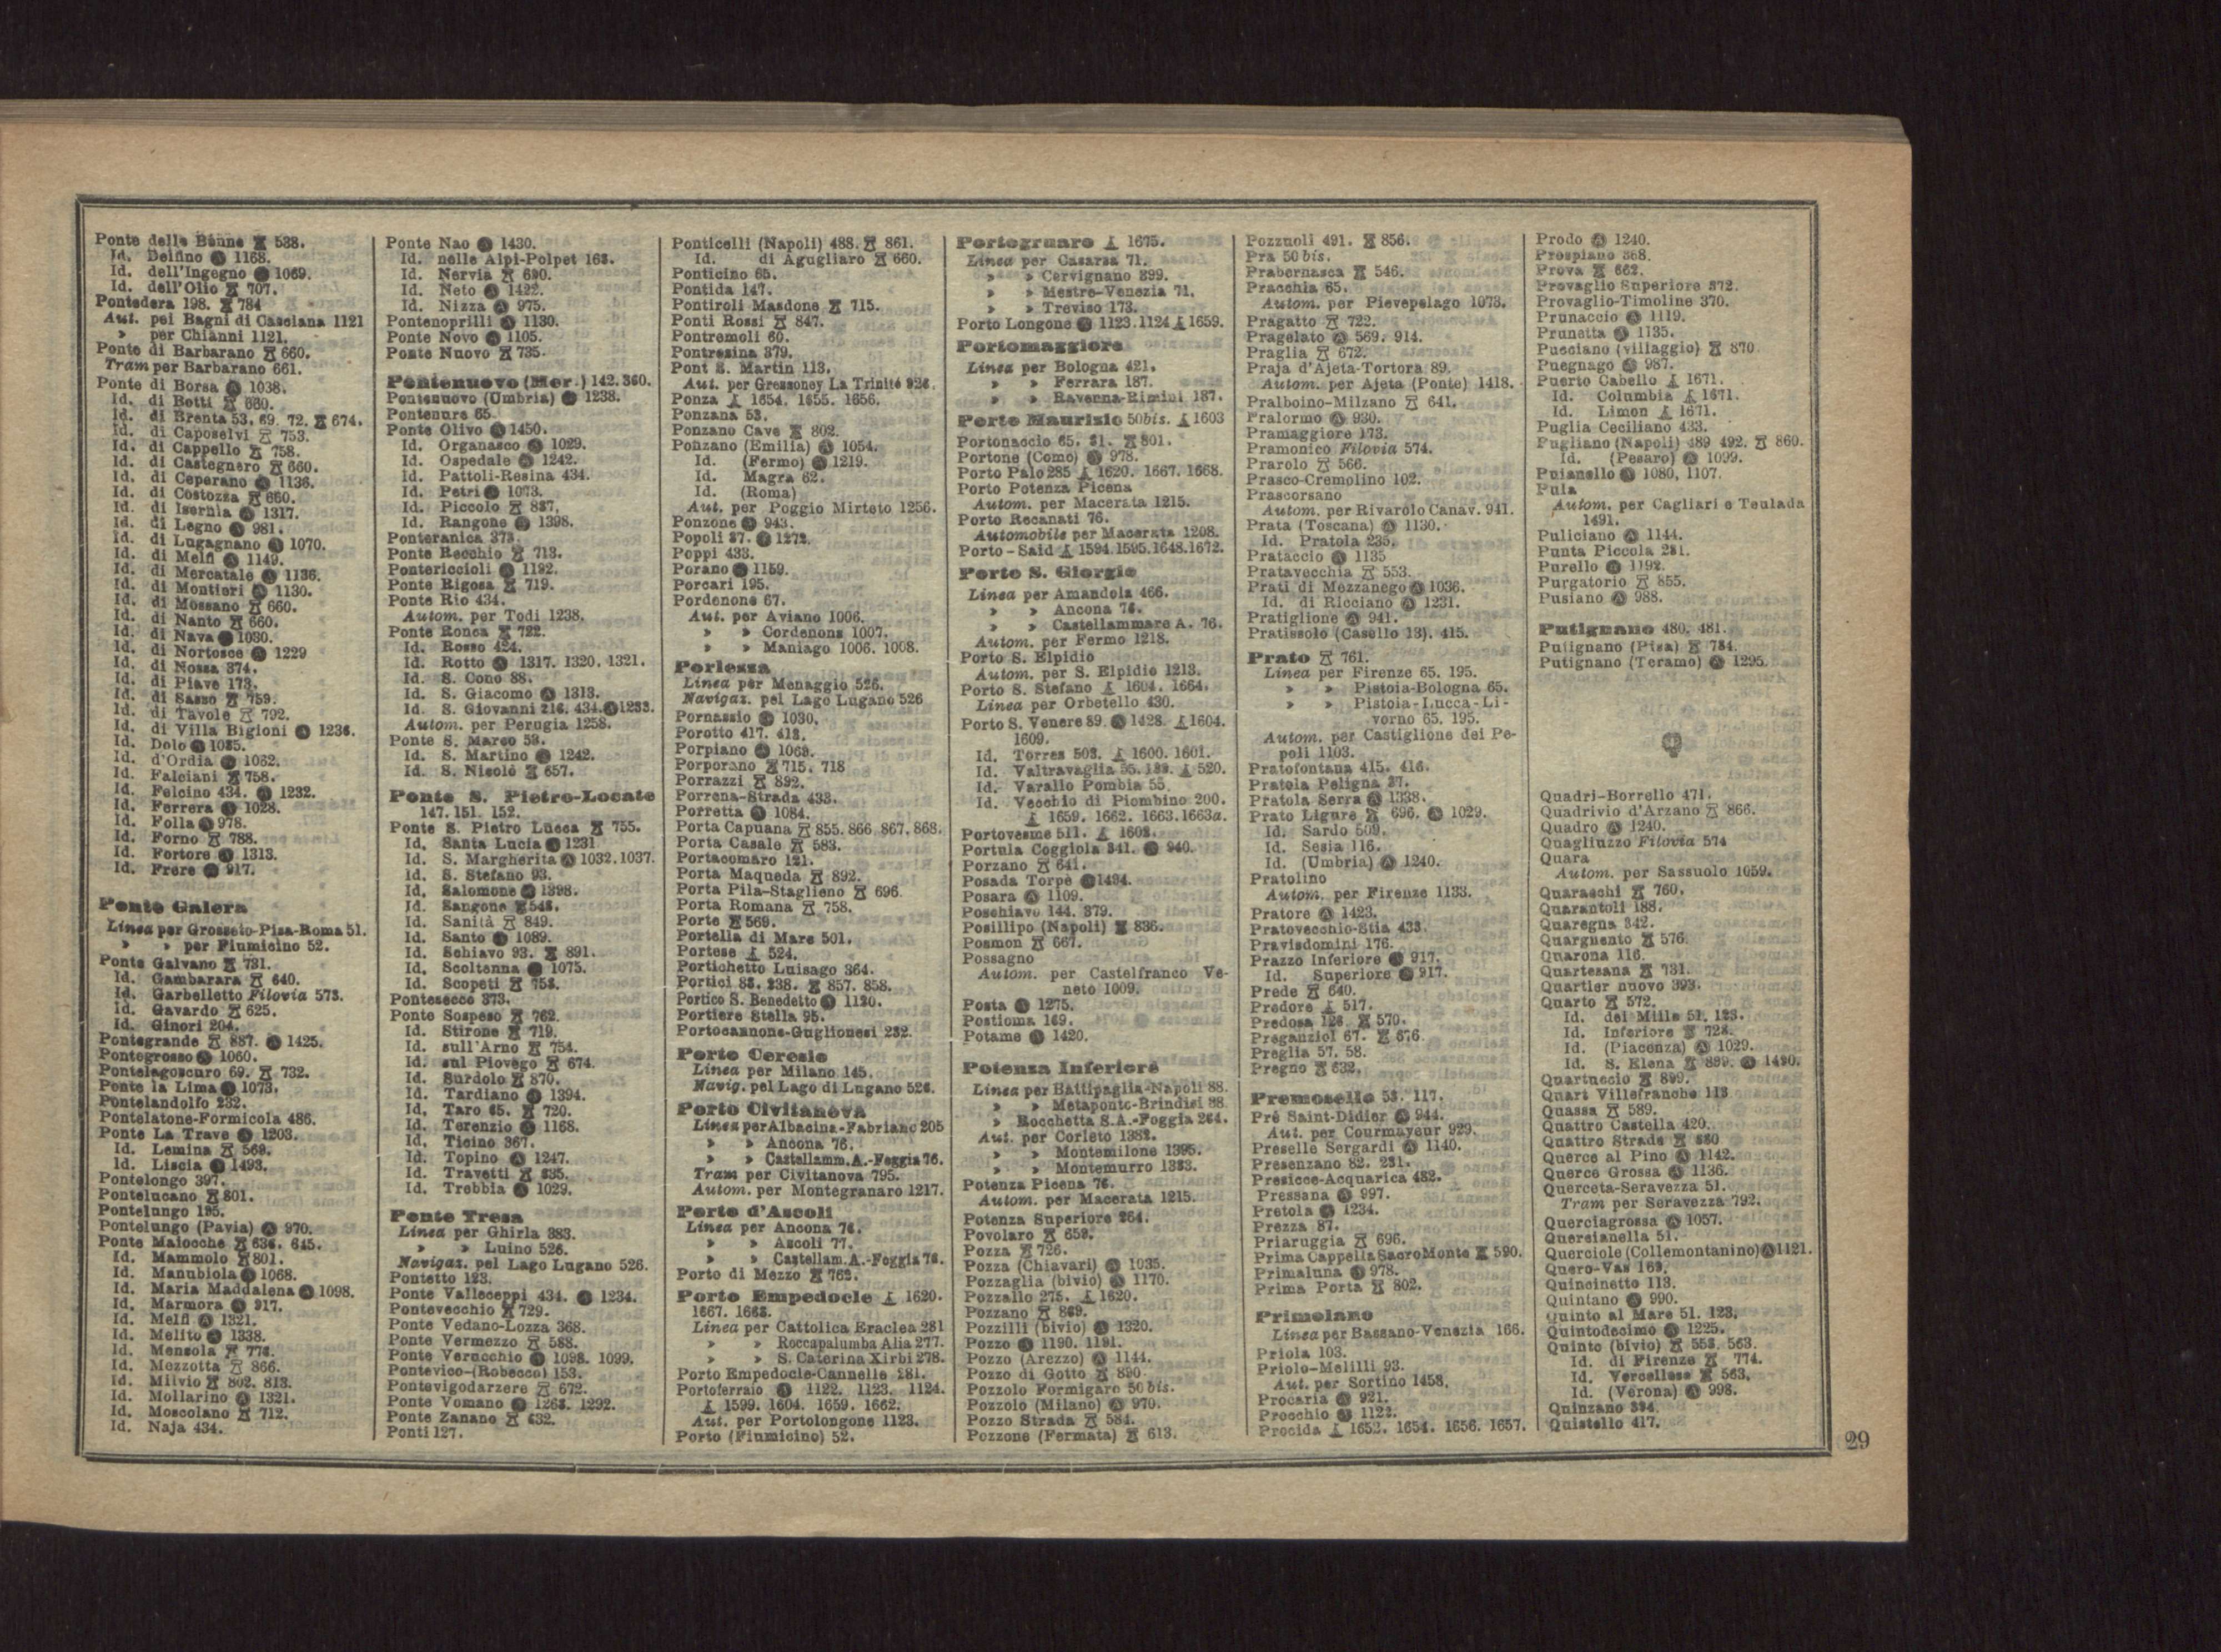 Ponte delle Banne 538.
Id. Delfino 1168.
Id. dell'Ingegno 1069.
Id. dell'Olio 707.
Pontedera 198. 784
Aut. pei Bagni di Casciana 1121
» per Chianni 1121.
Ponte di Barbarano 660.
Tram per Barbarano 661.
Ponte di Borsa 1038.
Id. di Botti 660.
Id. di Brenta 53. 69. 72. 674.
Id. di Caposelvi 753.
Id. di Cappello 758.
Id. di Castegnero 660.
Id. di Ceperano 1136.
Id. di Costozza 660.
Id. di Isernia 1317.
Id. di Legno 981.
Id. di Lugagnano 1070.
Id. di Melfi 1149.
Id. di Mercatale 1136.
Id. di Montieri 1130.
Id. di Mossano 660.
Id. di Nanto 660.
Id. di Nava 1030.
Id. di Nortosce 1229
Id. di Nossa 374.
Id. di Piave 173.
Id. di Sasso 759.
Id. di Tavole 792.
Id. di Villa Bigioni 1236.
Id. Dolo 1085.
Id. d'Ordia 1062.
Id. Falciani 758.
Id. Felcino 434. 1232.
Id. Ferrera 1028.
Id. Folla 978.
Id. Forno 788.
Id. Fortore 1313.
Id. Frere 917.
Ponte Galera
Linea per Grosseto-Pisa-Roma 51.
» » per Fiumicino 52.
Ponte Galvano 731.
Id. Gambarara 640.
Id. Garbelletto Filovia 573.
Id. Gavardo 625.
Id. Ginori 204.
Pontegrande 887. 1425.
Pontegrosso 1060.
Pontelagoscuro 69. 732.
Ponte la Lima 1073.
Pontelandolfo 232.
Pontelatone-Formicola 486.
Ponte La Trave 1203.
Id. Lemina 569.
Id. Liscia 1493.
Pontelongo 397.
Pontelucano 801.
Pontelungo 195.
Pontelungo (Pavia) 970.
Ponte Maiocche 636. 645.
Id. Mammolo 801.
Id. Manubiola 1068.
Id. Maria Maddalena 1098.
Id. Marmora 917.
Id. Melfi 1321.
Id. Melito 1338.
Id. Mensola 776.
Id. Mezzotta 866.
Id. Milvio 802. 813.
Id. Mollarino 1321.
Id. Moscolano 712.
Id. Naja 434.
Ponte Nao 1430.
Id. nelle Alpi-Polpet 168.
Id. Nervia 690.
Id. Neto 1422.
Id. Nizza 975.
Pontenoprilli 1130.
Ponte Novo 1105.
Ponte Nuovo 735.
Pontenuovo (Mer.) 142. 360.
Pontenuovo (Umbria) 1238.
Pontenure 65
Ponte Olivo 1450.
Id. Organasco 1029.
Id. Ospedale 1242.
Id. Pattoli-Resina 434.
Id. Petri 1073.
Id. Piccolo 887.
Id. Rangone 1398.
Ponteranica 373.
Ponte Recchio 713.
Pontericcioli 1192.
Ponte Rigosa 719.
Ponte Rio 434.
Autom. per Todi 1238.
Ponte Ronca 722.
Id. Rosso 424.
Id. Rotto 1317. 1320. 1321.
Id. S. Cono 88.
Id. S. Giacomo 1313.
Id. S. Giovanni 216. 434. 1233.
Autom. per Perugia 1258.
Ponte S. Marco 53.
Id. S. Martino 1242.
Id. S. Nicolò 657.
Ponte S. Pietro-Locate
147. 151. 152.
Ponte S. Pietro Lucca 755.
Id. Santa Lucia 1231
Id. S. Margherita 1032. 1037.
Id. S. Stefano 93.
Id. Salomone 1398.
Id. Sangone 548.
Id. Sanità 849.
Id. Santo 1089.
Id. Schiavo 93. 891.
Id. Scoltenna 1075.
Id. Scopeti 758.
Pontesecco 373.
Ponte Sospeso 762.
Id. Stirone 719.
Id. sull'Arno 754.
Id. sul Piovego 674.
Id. Surdolo 870.
Id. Tardiano 1394.
Id. Taro 65. 720.
Id. Terenzio 1168.
Id. Ticino 367.
Id. Topino 1247.
Id. Travetti 835.
Id. Trebbia 1029.
Ponte Tresa
Linea per Ghirla 383.
» » Luino 526.
Navigaz. pel Lago Lugano 526.
Pontetto 123.
Ponte Valleceppi 434. 1234.
Pontevecchio 729.
Ponte Vedano-Lozza 368.
Ponte Vermezzo 588.
Ponte Verucchio 1098. 1099.
Pontevico-(Robecco) 153.
Pontevigodarzere 672.
Ponte Vomano 1268. 1292.
Ponte Zanano 632.
Ponti 127.
Ponticelli (Napoli) 488. 861.
Id. di Agugliaro 660.
Ponticino 65.
Pontida 147.
Pontiroli Masdone 715.
Ponti Rossi 847.
Pontremoli 60.
Pontresina 379.
Pont S. Martin 113.
Aut. per Gressoney La Trinité 926.
Ponza 1654. 1655. 1656.
Ponzana 53.
Ponzano Cave 802.
Ponzano (Emilia) 1054.
Id. (Fermo) 1219.
Id. Magra 62.
Id. (Roma)
Aut. per Poggio Mirteto 1256.
Ponzone 943.
Popoli 87. 1272.
Poppi 433.
Porano 1159.
Porcari 195.
Pordenone 67.
Aut. per Aviano 1006.
» » Cordenons 1007.
» » Maniago 1006. 1008.
Porlezza
Linea per Menaggio 526.
Navigaz. pel Lago Lugano 526
Pornassio 1030.
Porotto 417. 418.
Porpiano 1069.
Porporano 715. 718
Porrazzi 892.
Porrena-Strada 433.
Porretta 1084.
Porta Capuana 855. 866. 867. 868.
Porta Casale 583.
Portacomaro 121.
Porta Maqueda 892.
Porta Pila-Staglieno 696.
Porta Romana 758.
Porte 569.
Portella di Mare 501.
Portese 524.
Portichetto Luisago 364.
Portici 88. 238. 857. 858.
Portico S. Benedetto 1120.
Portiere Stella 95.
Portocannone-Guglionesi 232.
Porto Ceresio
Linea per Milano 145.
Navig. pel Lago di Lugano 526.
Porto Civitanova
Linea per Albacina-Fabriano 205
» » Ancona 76.
» » Castellamm. A.-Foggia 76.
Tram per Civitanova 795.
Autom. per Montegranaro 1217.
Porto d'Ascoli
Linea per Ancona 76.
» » Ascoli 77.
» » Castellam. A.-Foggia 76.
Porto di Mezzo 762.
Porto Empedocle 1620.
1667. 1668.
Linea per Cattolica Eraclea 281
» » Roccapalumba Alia 277.
» » S. Caterina Xirbi 278.
Porto Empedocle-Cannelle 281.
Portoferraio 1122. 1123. 1124.
1599. 1604. 1659. 1662.
Aut. per Portolongone 1123.
Porto (Fiumicino) 52.
Portogruaro 1675.
Linea per Casarsa 71.
» » Cervignano 399.
» » Mestre-Venezia 71.
» » Treviso 173.
Porto Longone 1123. 1124 1659.
Portomaggiore
Linea per Bologna 421.
» » Ferrara 187.
» » Ravenna-Rimini 187.
Porto Maurizio 50bis. 1603
Portonaccio 65. 81. 801.
Portone (Como) 978.
Porto Palo 285 1620. 1667. 1668.
Porto Potenza Picena
Autom. per Macerata 1215.
Porto Recanati 76.
Automobile per Macerata 1208.
Porto-Said 1594. 1595. 1648. 1672.
Porto S. Giorgio
Linea per Amandola 466.
» » Ancona 76.
» » Castellammare A. 76.
Autom. per Fermo 1218.
Porto S. Elpidio
Autom. per S. Elpidio 1213.
Porto S. Stefano 1604. 1664.
Linea per Orbetello 430.
Porto S. Venere 89. 1428. 1604.
1609.
Id. Torres 503. 1600. 1601.
Id. Valtravaglia 55. 520.
Id. Varallo Pombia 55
Id. Vecchio di Piombino 200.
1659. 1662. 1663. 1663a.
Portovesme 511. 1602.
Portula Coggiola 341. 940.
Porzano 641.
Posada Torpè 1494.
Posara 1109.
Poschiavo 144. 379.
Posillipo (Napoli) 836.
Posmon 667.
Possagno
Autom. per Castelfranco Ve-
neto 1009.
Posta 1275.
Postioma 169.
Potame 1420.
Potenza Inferiore
Linea per Battipaglia-Napoli 88.
» » Metaponto-Brindisi 88
» Rocchetta S.A.-Foggia 264.
Aut. per Corleto 1382.
» » Montemilone 1395.
» » Montemurro 1383.
Potenza Picena 76.
Autom. per Macerata 1215.
Potenza Superiore 264.
Povolaro 659.
Pozza 726.
Pozza (Chiavari) 1035.
Pozzaglia (bivio) 1170.
Pozzallo 275. 1620.
Pozzano 869.
Pozzilli (bivio) 1320.
Pozzo 1190. 1191.
Pozzo (Arezzo) 1144.
Pozzo di Gotto 890
Pozzolo Formigaro 50bis.
Pozzolo (Milano) 970.
Pozzo Strada 584.
Pozzone (Fermata) 613.
Pozzuoli 491. 856.
Pra 50bis.
Prabernasca 546.
Pracchia 65.
Autom. per Pievepelago 1073.
Pragatto 722.
Pragelato 569. 914.
Praglia 672.
Praja d'Ajeta-Tortora 89.
Autom. per Ajeta (Ponte) 1418.
Pralboino-Milzano 641.
Pralormo 930.
Pramaggiore 173.
Pramonico Filovia 574.
Prarolo 566.
Prasco-Cremolino 102.
Prascorsano
Autom. per Rivarolo Canav. 941.
Prata (Toscana) 1130.
Id. Pratola 235.
Prataccio 1135
Pratavecchia 553.
Prati di Mezzanego 1036.
Id. di Ricciano 1231.
Pratiglione 941.
Pratissolo (Casello 13). 415.
Prato 761.
Linea per Firenze 65. 195.
» » Pistoia-Bologna 65.
» » Pistoia-Lucca-Li-
vorno 65. 195.
Autom. per Castiglione dei Pe-
poli 1103.
Pratofontana 415. 416.
Pratola Peligna 87.
Pratola Serra 1338.
Prato Ligure 696. 1029.
Id. Sardo 509.
Id. Sesia 116.
Id. (Umbria) 1240.
Pratolino
Autom. per Firenze 1133.
Pratore 1423.
Pratovecchio-Stia 433.
Pravisdomini 176.
Prazzo Inferiore 917.
Id. Superiore 917.
Prede 640.
Predore 517.
Predosa 126. 570.
Preganziol 67. 676
Preglia 57. 58.
Pregno 632.
Premosello 58. 117.
Pré Saint-Didier 944.
Aut. per Courmayeur 929.
Preselle Sergardi 1140.
Presenzano 82. 231.
Presicce-Acquarica 482.
Pressana 997.
Pretola 1234.
Prezza 87.
Priaruggia 696.
Prima Cappella Sacro Monte 590.
Primaluna 978.
Prima Porta 802.
Primolano
Linea per Bassano-Venezia 166.
Priola 103.
Priolo-Melilli 93.
Aut. per Sortino 1458.
Procaria 921.
Procchio 1122.
Procida 1652. 1654. 1656. 1657.
Prodo 1240.
Prospiano 368.
Prova 662.
Provaglio Superiore 372.
Provaglio-Timoline 370.
Prunaccio 1119.
Prunetta 1135.
Pucciano (villaggio) 870
Puegnago 987.
Puerto Cabello 1671.
Id. Columbia 1671.
Id. Limon 1671.
Puglia Ceciliano 433.
Pugliano (Napoli) 489 492. 860.
Id. (Pesaro) 1099.
Puianello 1080. 1107.
Pula
Autom. per Cagliari e Teulada
1491.
Puliciano 1144.
Punta Piccola 281.
Purello 1192.
Purgatorio 855.
Pusiano 988.
Putignano 480. 481.
Putignano (Pisa) 784.
Putignano (Teramo) 1295.
Quadri-Borrello 471.
Quadrivio d'Arzano 866.
Quadro 1240.
Quagliuzzo Filovia 574
Quara
Autom. per Sassuolo 1059.
Quaraschi 760.
Quarantoli 188.
Quaregna 342.
Quargnento 576.
Quarona 116.
Quartesana 731.
Quartier nuovo 393.
Quarto 572.
Id. dei Mille 51. 123.
Id. Inferiore 728.
Id. (Piacenza) 1029.
Id. S. Elena 899. 1490.
Quartuccio 899.
Quart Villefranche 113
Quassa 589.
Quattro Castella 420.
Quattro Strade 880
Querce al Pino 1142.
Querce Grossa 1136.
Querceta-Seravezza 51.
Tram per Seravezza 792.
Querciagrossa 1057.
Quercianella 51.
Querciole (Collemontanino) 1121.
Quero-Vas 169.
Quincinetto 113.
Quintano 990.
Quinto al Mare 51. 123.
Quintodecimo 1225.
Quinto (bivio) 553. 563.
Id. di Firenze 774.
Id. Vercellese 563.
Id. (Verona) 998.
Quinzano 394.
Quistello 417.
29